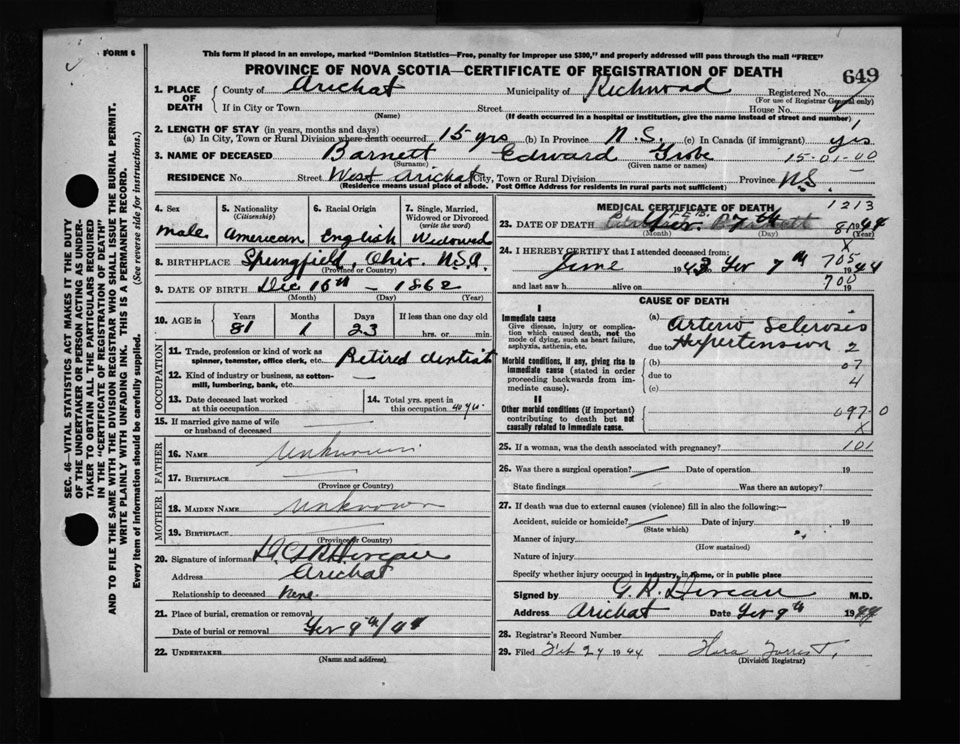 FORM 6
This form if placed in an envelope, marked "Dominion Statistics—Free, penalty for improper use $300," and properly addressed will pass through the mail "FREE"
PROVINCE OF NOVA SCOTIA—CERTIFICATE OF REGISTRATION OF DEATH
649
1. PLACE OF DEATH
County of Arichat Municipality of Richmond Registered No.
(For use of Registrar General only)
If in City or Town Street House No.
(Name) (If death occurred in a hospital or institution, give the name instead of street and number)
2. LENGTH OF STAY (in years, months and days)
(a) In City, Town or Rural Division where death occurred 15 yrs (b) In Province N.S. (c) In Canada (if immigrant) yes
3. NAME OF DECEASED Barnett Edward Grobe 15-01-00
(Surname) (Given name or names)
RESIDENCE No. Street West Arichat City, Town or Rural Division Province N.S.
(Residence means usual place of abode. Post Office Address for residents in rural parts not sufficient)
4. Sex
male
5. Nationality (Citizenship)
American
6. Racial Origin
English
7. Single, Married, Widowed or Divorced (write the word)
Widowed
8. BIRTHPLACE Springfield, Ohio. U.S.A.
(Province or Country)
9. DATE OF BIRTH Dec 16th — 1862
(Month) (Day) (Year)
10. AGE in
Years Months Days If less than one day old
81 1 23 hrs. or min.
OCCUPATION
11. Trade, profession or kind of work as spinner, teamster, office clerk, etc. Retired dentist
12. Kind of industry or business, as cotton-mill, lumbering, bank, etc. —
13. Date deceased last worked at this occupation
14. Total yrs. spent in this occupation 40 yrs.
15. If married give name of wife or husband of deceased
FATHER
16. NAME Unknown
17. BIRTHPLACE
(Province or Country)
MOTHER
18. MAIDEN NAME Unknown
19. BIRTHPLACE
(Province or Country)
20. Signature of informant
Address Arichat
Relationship to deceased none.
21. Place of burial, cremation or removal
Date of burial or removal 9th/44
22. UNDERTAKER
(Name and address)
MEDICAL CERTIFICATE OF DEATH 1213
23. DATE OF DEATH FEB. 7th 1944
(Month) (Day) (Year)
24. I HEREBY CERTIFY that I attended deceased from:
June 1943 to 7th 1944
X
705
and last saw h alive on 19
700
CAUSE OF DEATH
I
Immediate cause
Give disease, injury or complication which caused death, not the mode of dying, such as heart failure, asphyxia, asthenia, etc.
(a) Arterio Sclerosis
due to Hypertension 2
Morbid conditions, if any, giving rise to immediate cause (stated in order proceeding backwards from immediate cause).
(b) 07
due to 4
(c)
II
Other morbid conditions (if important) contributing to death but not causally related to immediate cause.
097-0
X
25. If a woman, was the death associated with pregnancy? 101
26. Was there a surgical operation? — Date of operation 19
State findings Was there an autopsy?
27. If death was due to external causes (violence) fill in also the following:—
Accident, suicide or homicide? Date of injury 19
(State which)
Manner of injury
(How sustained)
Nature of injury
Specify whether injury occurred in industry, in home, or in public place
Signed by M.D.
Address Arichat Date 9th 1944
28. Registrar's Record Number
29. Filed Feb 27 1944
(Division Registrar)
SEC. 46—VITAL STATISTICS ACT MAKES IT THE DUTY
OF THE UNDERTAKER OR PERSON ACTING AS UNDER-
TAKER TO OBTAIN ALL THE PARTICULARS REQUIRED
IN THE "CERTIFICATE OF REGISTRATION OF DEATH"
AND TO FILE THE SAME WITH THE DIVISION REGISTRAR WHO SHALL ISSUE THE BURIAL PERMIT.
WRITE PLAINLY WITH UNFADING INK. THIS IS A PERMANENT RECORD.
Every item of information should be carefully supplied. (See reverse side for instructions.)